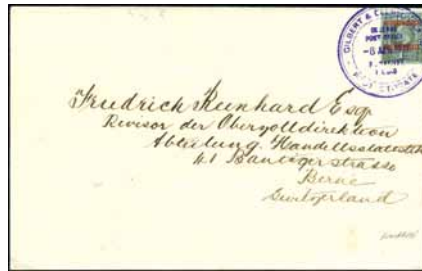 GILBERT & ELLICE
POST OFFICE
PROTECTORATE
Friedrich Reinhard Esqr
Revisor der Oberzolldirektion
Abteilung. Handelsstatistik
41 Bantigerstrasse
Berne
Switzerland